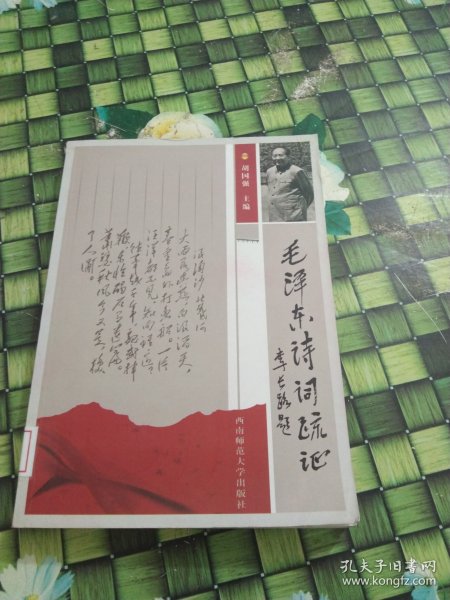 胡国强 主编
毛泽东诗词疏证
李长路题
浪淘沙 北戴河
大雨落幽燕，白浪滔天，
秦皇岛外打鱼船。一片
汪洋都不见，知向谁边？
往事越千年，魏武挥
鞭，东临碣石有遗篇。
萧瑟秋风今又是，换
了人间。
西南师范大学出版社
孔夫子旧书网
www.kongfz.com